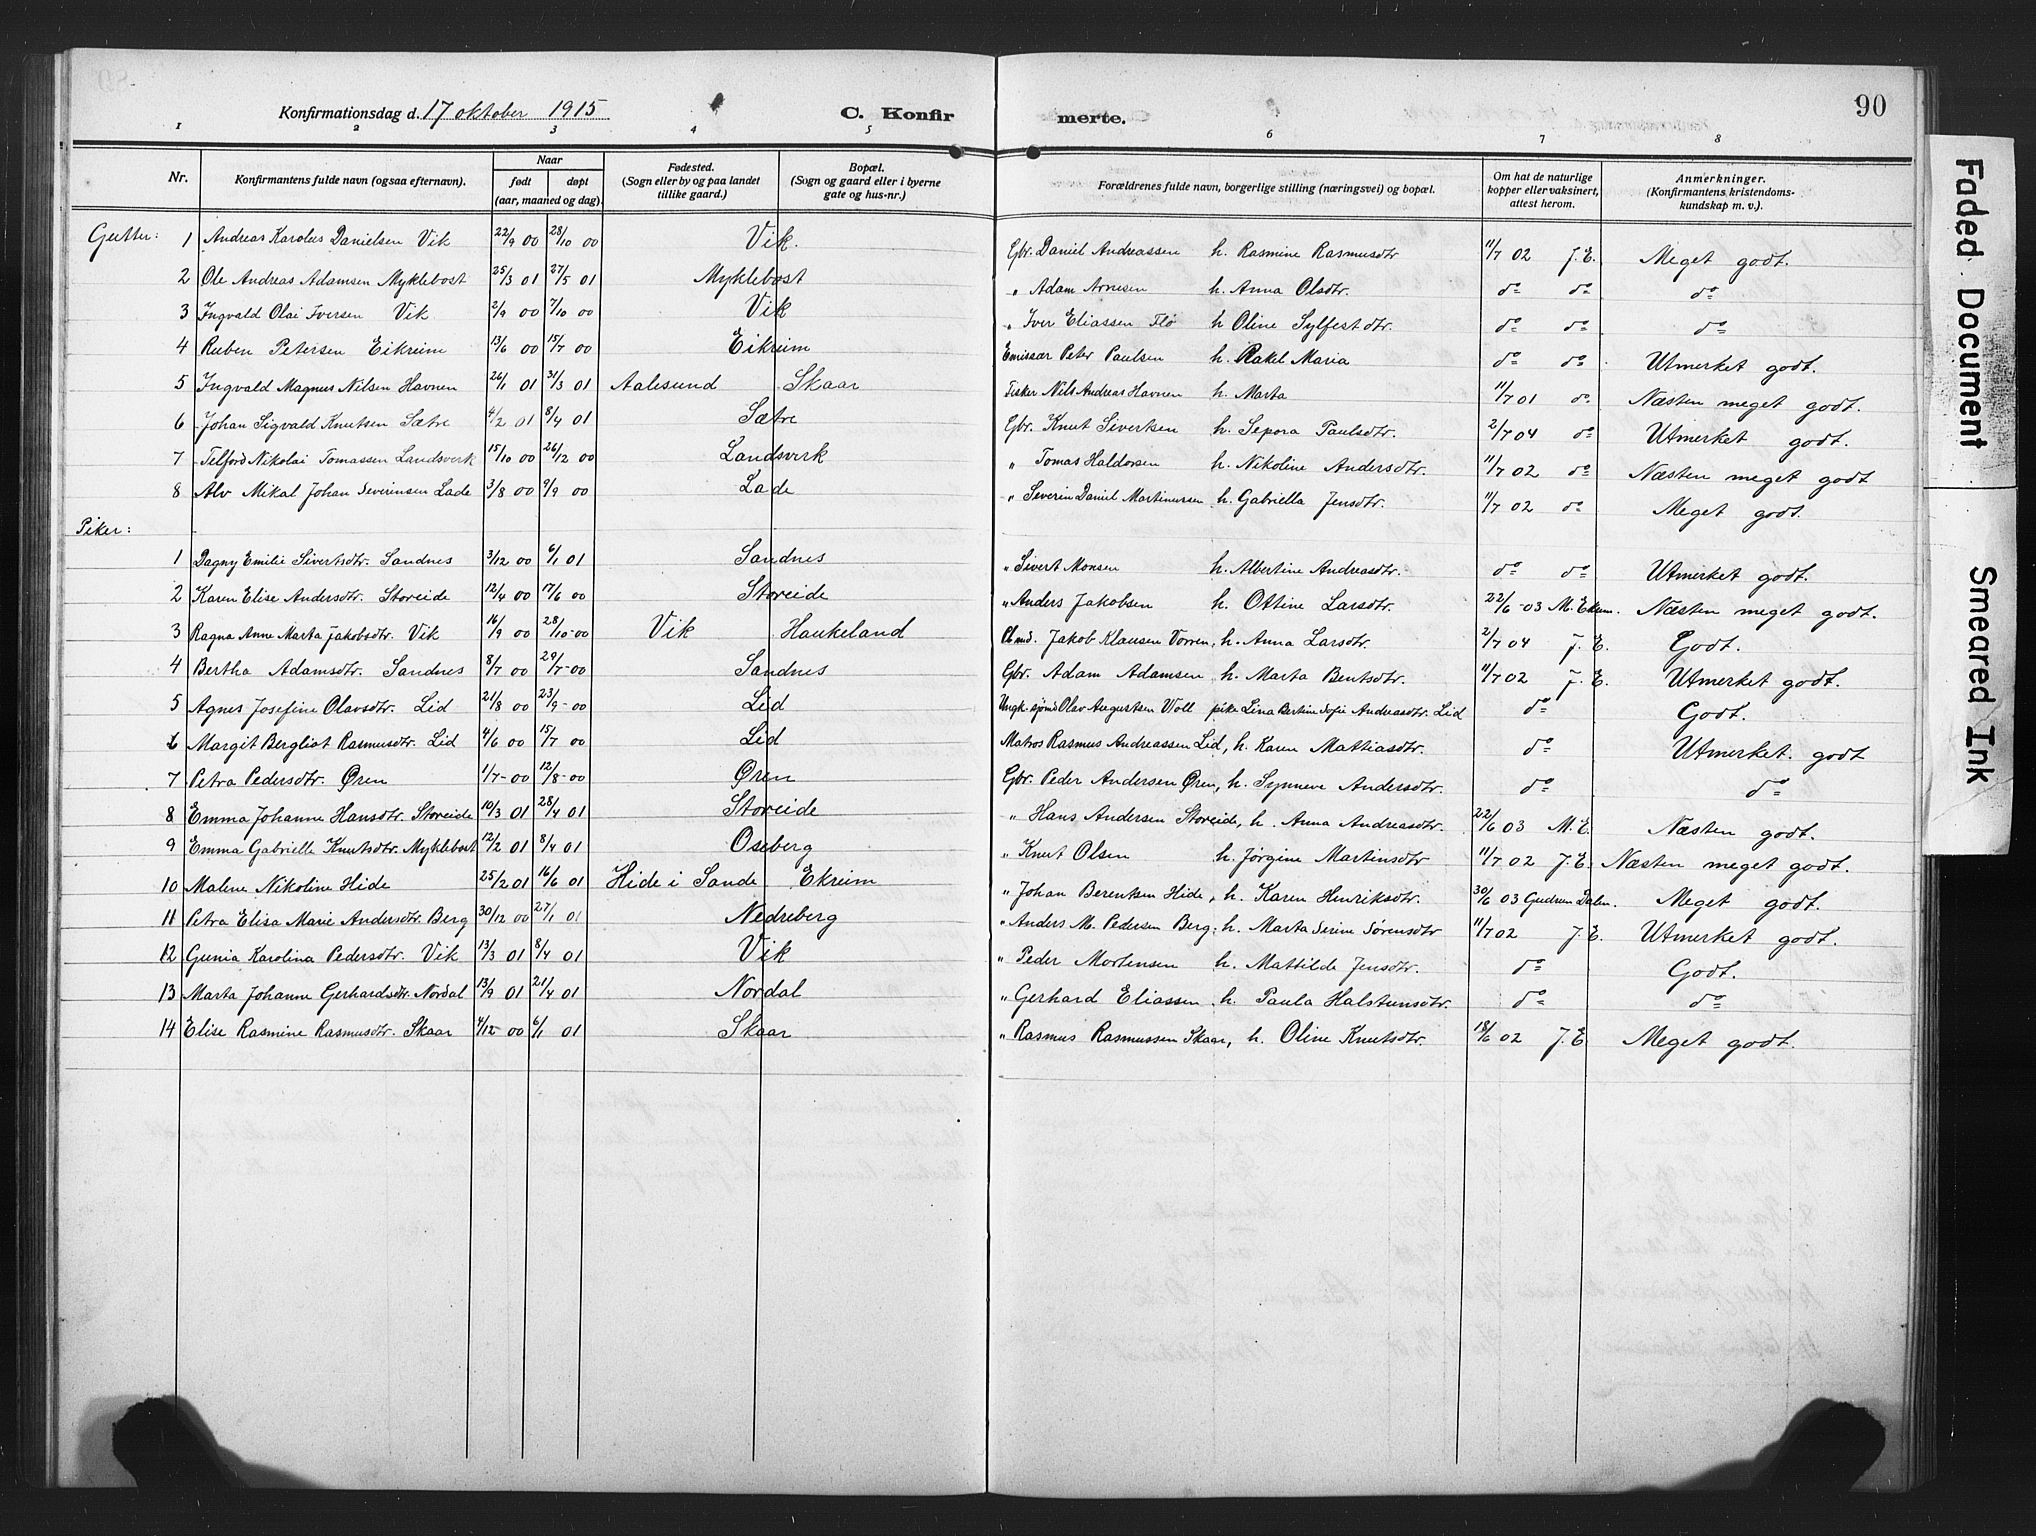 Konfirmationsdag d. 17 oktober 1915 C. Konfirmerte. 90
1 2 3 4 5 6 7 8
Nr. Konfirmantens fulde navn (ogsaa efternavn). Naar født døpt (aar, maaned og dag). Fødested. (Sogn eller by og paa landet tillike gaard.) Bopæl. (Sogn og gaard eller i byerne gate og hus-nr.) Forældrenes fulde navn, borgerlige stilling (næringsvei) og bopæl. Om hat de naturlige kopper eller vaksinert, attest herom. Anmerkninger. (Konfirmantens kristendoms-kundskap m. v.).
Gutter: 1 Andreas Karolus Danielsen Vik 22/9 00 28/10 00 Vik. Gbr. Daniel Andreassen h. Rasmine Rasmusdtr 11/7 02 J. E. Meget godt.
2 Ole Andreas Adamsen Myklebost 25/3 01 27/5 01 Myklebost " Adam Arnesen h. Anna Olsdtr. do do do
3 Ingvald Olai Iversen Vik 2/9 00 7/10 00 Vik " Iver Eliassen Flö h Oline Sylfestdtr. do do do
4 Ruben Petersen Eikreim 13/6 00 15/7 00 Eikreim Emissær Peter Paulsen h. Rakel Maria do do Utmerket godt.
5 Ingvald Magnus Nilsen Havnen 26/1 01 31/3 01 Aalesund Skaar Fisker Nils Andreas Havnen h. Marta 11/7 01 do. Næsten meget godt.
6 Johan Sigvald Knutsen Sætre 4/2 01 8/4 01 Sætre Gbr. Knut Sivertsen h. Sepora Paulsdtr. 2/7 04 do Utmerket godt.
7 Telford Nikolai Tomassen Landsverk 15/10 00 26/12 00 Landsverk " Tomas Haldorsen h. Nikoline Andersdtr. 11/7 02 do Næsten meget godt
8 Alv Mikal Johan Severinsen Lade 3/8 00 9/9 00 Lade " Severin Daniel Martinussen h. Gabriella Jensdtr. 11/7 02 do Meget godt.
Piker:
1 Dagny Emilie Sivertsdtr. Sandnes 3/12 00 6/1 01 Sandnes " Sivert Monsen h. Albertine Andreasdtr. do do Utmerket godt.
2 Karen Elise Andersdtr. Storeide 12/4 00 17/6 00 Storeide " Anders Jakobsen h. Ottine Larsdtr. 22/6 -03 M. Ekum. Næsten meget godt.
3 Ragna Anne Marta Jakobsdtr. Vik 16/9 00 28/10-00 Vik Haukeland Jakob Klausen Vorren, h. Anna Larsdtr. 2/7 04 J. E. Godt.
4 Bertha Adamsdtr. Sandnes 8/7 00 29/7-00 Sandnes Gbr. Adam Adamsen h. Marta Bentsdtr. 11/7 02 J. E. Utmerket godt.
5 Agnes Josefine Olavsdtr. Lid 21/8 00 23/9-00 Lid Ungk. sjömd Olav Augustsen Voll pike Lina Bertine Sofie Andreasdtr. Lid do Godt.
6 Margit Bergliot Rasmusdtr. Lid 4/6 00 15/7 00 Lid Matros Rasmus Andreassen Lid, h. Karen Mattiasdtr. do Utmerket. godt
7 Petra Pedersdtr. Øren 1/7-00 12/8-00 Øren Gbr. Peder Andersen Øren, h. Synneve Andersdtr. do do
8 Emma Johanne Hansdtr. Storeide 10/3 01 28/4 01 Storeide " Hans Andersen Storeide, h. Anna Andreasdtr. 22/6 03 M. E. Næsten godt.
9 Emma Gabrielle Knutsdtr. Myklebost 12/2 01 8/4 01 Oseberg " Knut Olsen h. Jørgine Martinsdtr 11/7 02 J. E. Næsten meget godt.
10 Malene Nikoline Hide 25/2 01 16/6 01 Hide i Sande Ekreim " Johan Berentsen Hide, h. Karen Henriksdtr. 30/6 03 Gudrun Dalen. Meget godt.
11 Petra Elisa Marie Andersdtr. Berg 30/12 00 27/1 01 Nedreberg " Anders M. Pedersen Berg, h. Marta Serine Sørensdtr 11/7 02 J. E. Utmerket godt.
12 Gunia Karolina Pedersdtr. Vik 13/3 01 8/4 01 Vik " Peder Mortensen h. Mattilde Jensdtr. do Godt.
13 Marta Johanne Gerhardsdtr. Nordal 13/9 01 21/4 01 Nordal " Gerhard Eliassen h. Paula Halstensdtr. do do
14 Elise Rasmine Rasmusdtr. Skaar 4/12-00 6/1 01 Skaar " Rasmus Rasmussen Skaar, h. Oline Knutsdtr. 18/6 02 J. E. Meget godt.
Faded Document
Smeared Ink